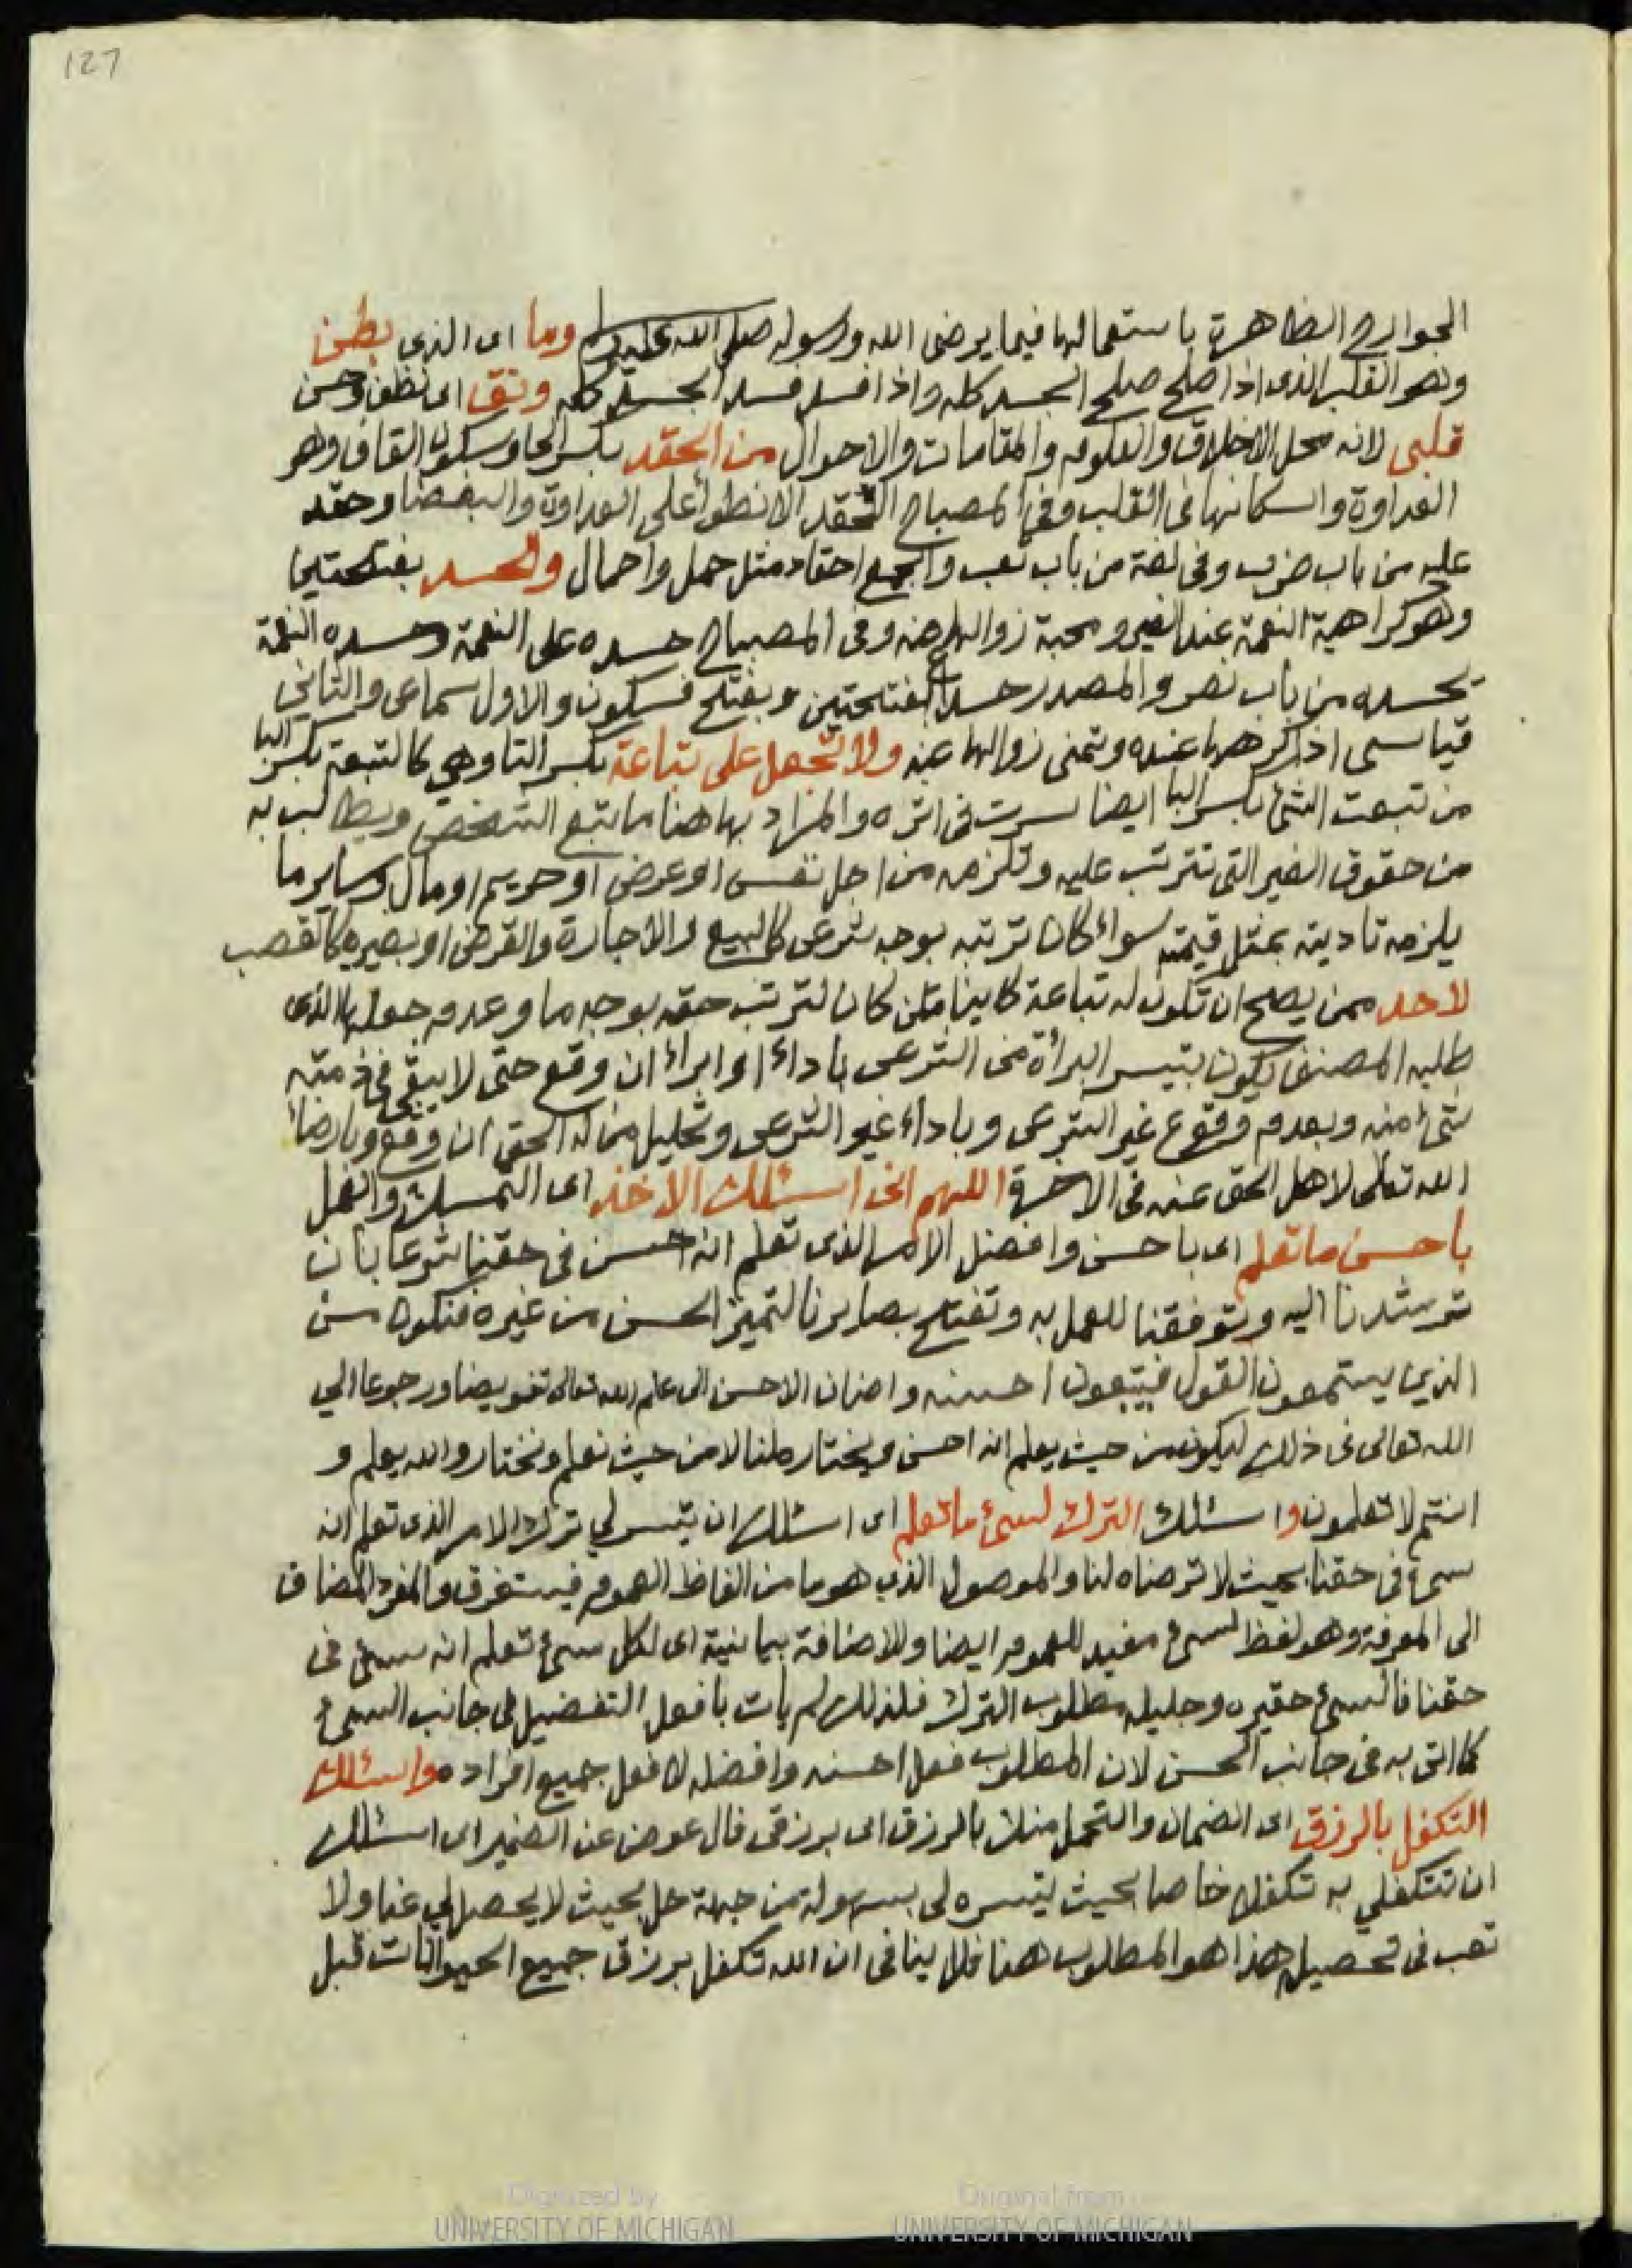 127
الجوارح الظاهرة باستعمالها فيما يرضى الله ورسوله صلى الله عليه وسلم وما اى الذى بطن
وهو القلب الذى اذا صلح صلح الجسد كله واذا فسد فسد الجسد كله ونق اى نظف وحسن
قلبى لانه محل الاخلاق والعلوم والمقامات والاحوال من الحقد بكسر الحا وسكون القاف وهو
العداوة واسكانها فى القلب وفى المصباح الحقد الانطوأ على العداوة والبغضا وحقد
عليه من باب ضرب وفى لغة من باب تعب والجمع احقاد مثل حمل واحمال والحسد بفتحتين
وهو كراهية النعمة عند الغير ومحبة زوالها عنه وفى المصباح حسده على النعمة وحسده النعمة
يحسده من باب نصر والمصدر حسدا بفتحتين وبفتح فسكون والاول سماعى والثانى
قياسى اذا كرهها عنده وتمنى زوالها عنه ولا تجعل على تباعة بكسر التا وهى كالتبعة بكسر البا
من تبعت الشئ بكسر البا ايضا سرت فى اثره والمراد بها هنا ما يتبع الشخص ويطالب به
من حقوق الغير التى تترتب عليه وتلزمه من اجل نفس او عرض او حريم او مال وساير ما
يلزمه تاديته بمثل قيمته سواء كان ترتبه بوجه شرعى كالبيع والاجارة والقرض او بغيره كالغصب
لاحد ممن يصح ان تكون له تباعة كاينا من كان لترتب حقه بوجه ما وعدم جعلها الذى
طلبه المصنف يكون بتيسر البرأة من الشرعى باداء او ابراء ان وقع حتى لا يبقى فى ذمته
شئ منه وبعدم وقوع غير الشرعى وباداء غير الشرعى وتحليل من له الحق ان وقع وبارضاء
الله تعالى لاهل الحق عنه فى الاخرة اللهم انى اسئلك الاخذ اى التمسك والعمل
باحسن ما تعلم اى باحسن وافضل الامر الذى تعلم انه احسن فى حقنا شرعا بان
ترشدنا اليه وتوفقنا للعمل به وتفتح بصايرنا لتميز الحسن من غيره فنكون من
الذين يستمعون القول فيتبعون احسنه واضاف الاحسن الى علم الله تعالى تفويضا ورجوعا الى
الله تعالى فى ذلك ليكون من حيث يعلم انه احسن ويختاره لنا لا من حيث نعلم ونختار والله يعلم و
انتم لا تعلمون واسئلك الترك لسئ ما تعلم اى اسئلك ان تيسر لى ترك الامر الذى تعلم انه
سئ فى حقنا بحيث لا ترضاه لنا والموصول الذى هو ما من الفاظ العموم فيستغرق والمفرد المضاف
الى المعرفة وهو لفظ لسئ مفيد للعموم ايضا والاضافة بيانية اى لكل سئ تعلم انه سئ فى
حقنا فالسئ حقيره وجليله مطلوب الترك فلذلك لم يات بافعل التفضيل فى جانب السئ
كما اتى به فى جانب الحسن لان المطلوب فعل احسنه وافضله لا فعل جميع افراده واسئلك
التكفل بالرزق اى الضمان والتحمل منك بالرزق اى برزقى فال عوض عن الضمير اى اسئلك
ان تتكفلى به تكفلا خاصا بحيث تيسره لى بسهولة من جهة حل بحيث لا يحصل لى عنا ولا
تعب فى تحصيله هذا هو المطلوب هنا فلا ينافى ان الله تكفل برزق جميع الحيوانات قبل
Digitized by
UNIVERSITY OF MICHIGAN
Original from
UNIVERSITY OF MICHIGAN